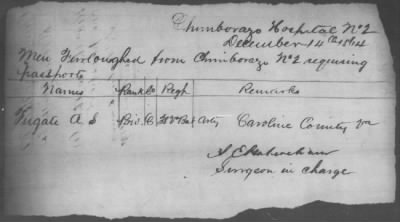 Chimborazo Hospital No 2
December 14th 1864
Men Furloughed from Chimborazo No 2 requiring
passports
Names Rank Co Regt Remarks
Fugate A S Pvt C Va Caroline County Va
Surgeon in charge